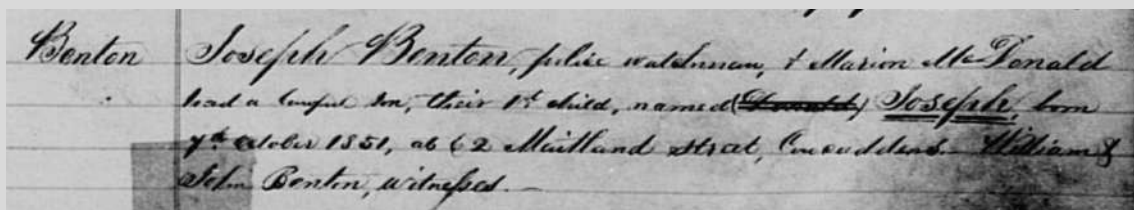 Benton Joseph Benton, police watchman, & Marion McDonald
had a lawful son, their 1st child, named (Donald) Joseph, born
7th October 1851, at 62 Maitland Street, Cowcaddens. William &
John Benton, witnesses. —